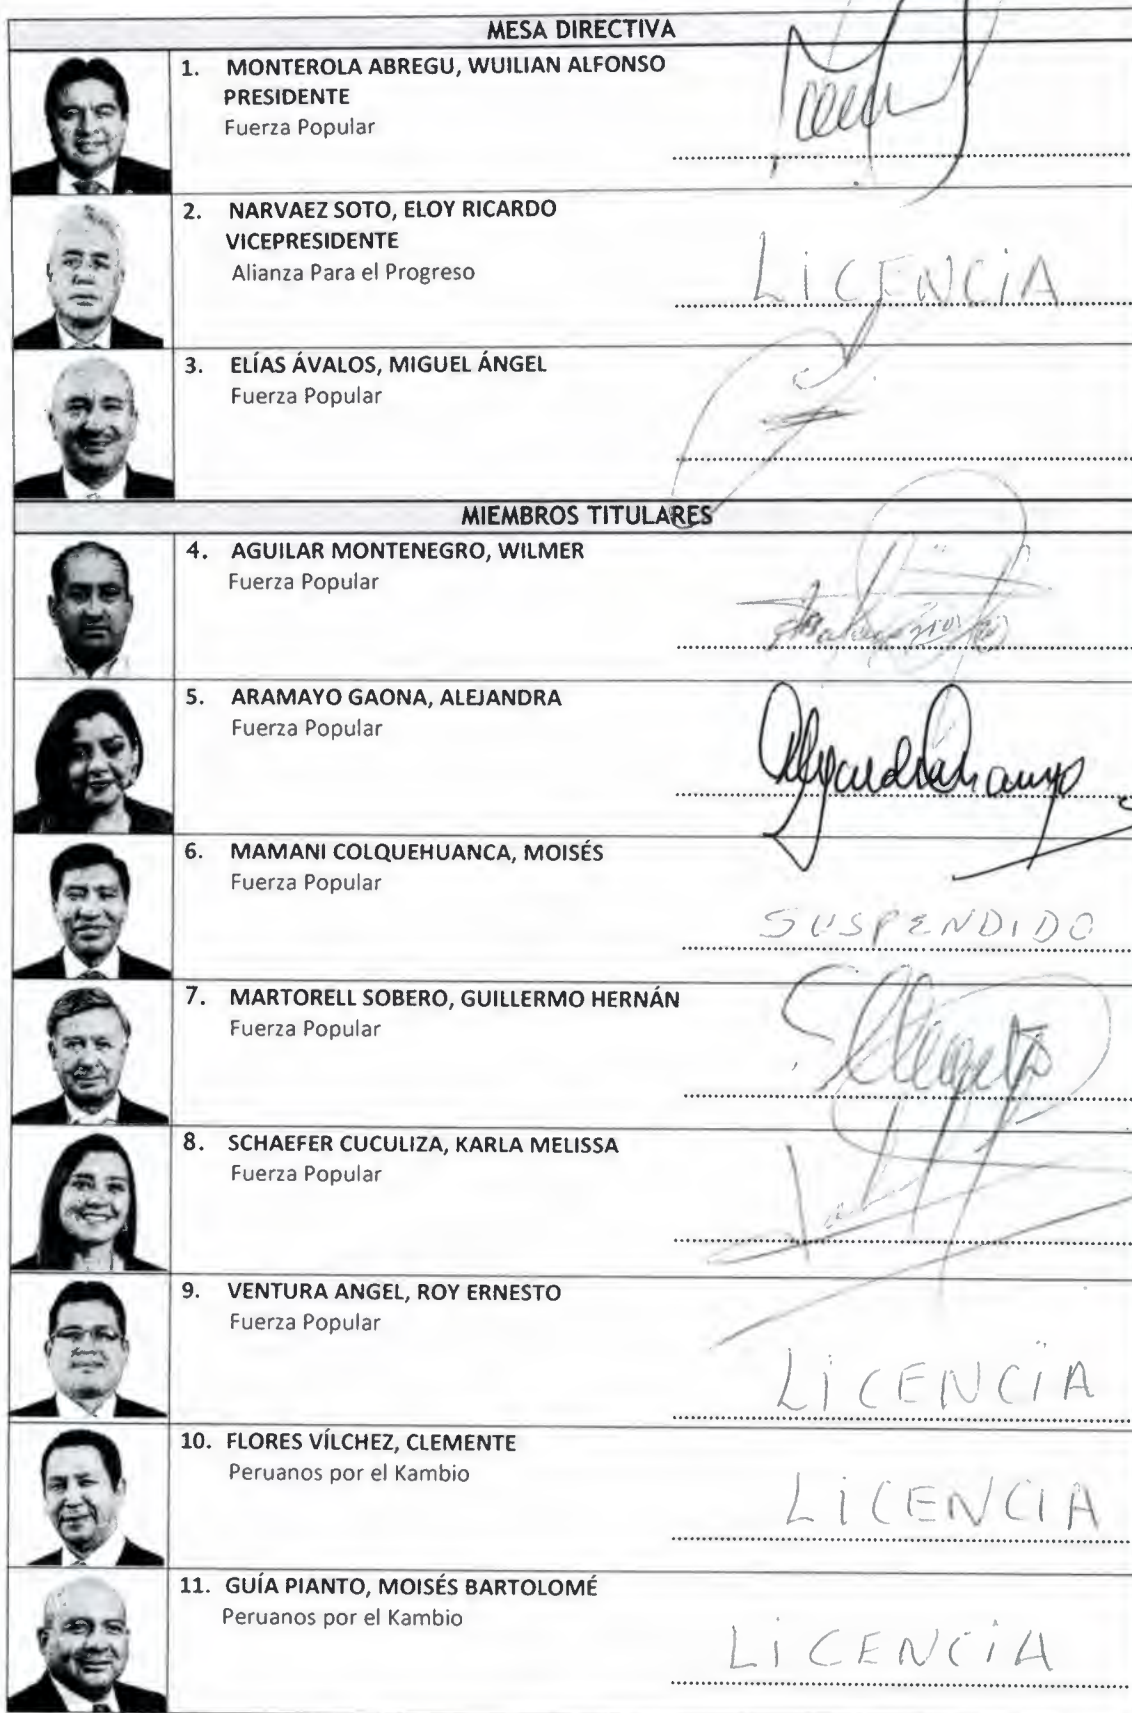 MESA DIRECTIVA
1. MONTEROLA ABREGU, WUILIAN ALFONSO
PRESIDENTE
Fuerza Popular
2. NARVAEZ SOTO, ELOY RICARDO
VICEPRESIDENTE
Alianza Para el Progreso
LICENCIA
3. ELÍAS ÁVALOS, MIGUEL ÁNGEL
Fuerza Popular
MIEMBROS TITULARES
4. AGUILAR MONTENEGRO, WILMER
Fuerza Popular
5. ARAMAYO GAONA, ALEJANDRA
Fuerza Popular
6. MAMANI COLQUEHUANCA, MOISÉS
Fuerza Popular
SUSPENDIDO
7. MARTORELL SOBERO, GUILLERMO HERNÁN
Fuerza Popular
8. SCHAEFER CUCULIZA, KARLA MELISSA
Fuerza Popular
9. VENTURA ANGEL, ROY ERNESTO
Fuerza Popular
LICENCIA
10. FLORES VÍLCHEZ, CLEMENTE
Peruanos por el Kambio
LICENCIA
11. GUÍA PIANTO, MOISÉS BARTOLOMÉ
Peruanos por el Kambio
LICENCIA